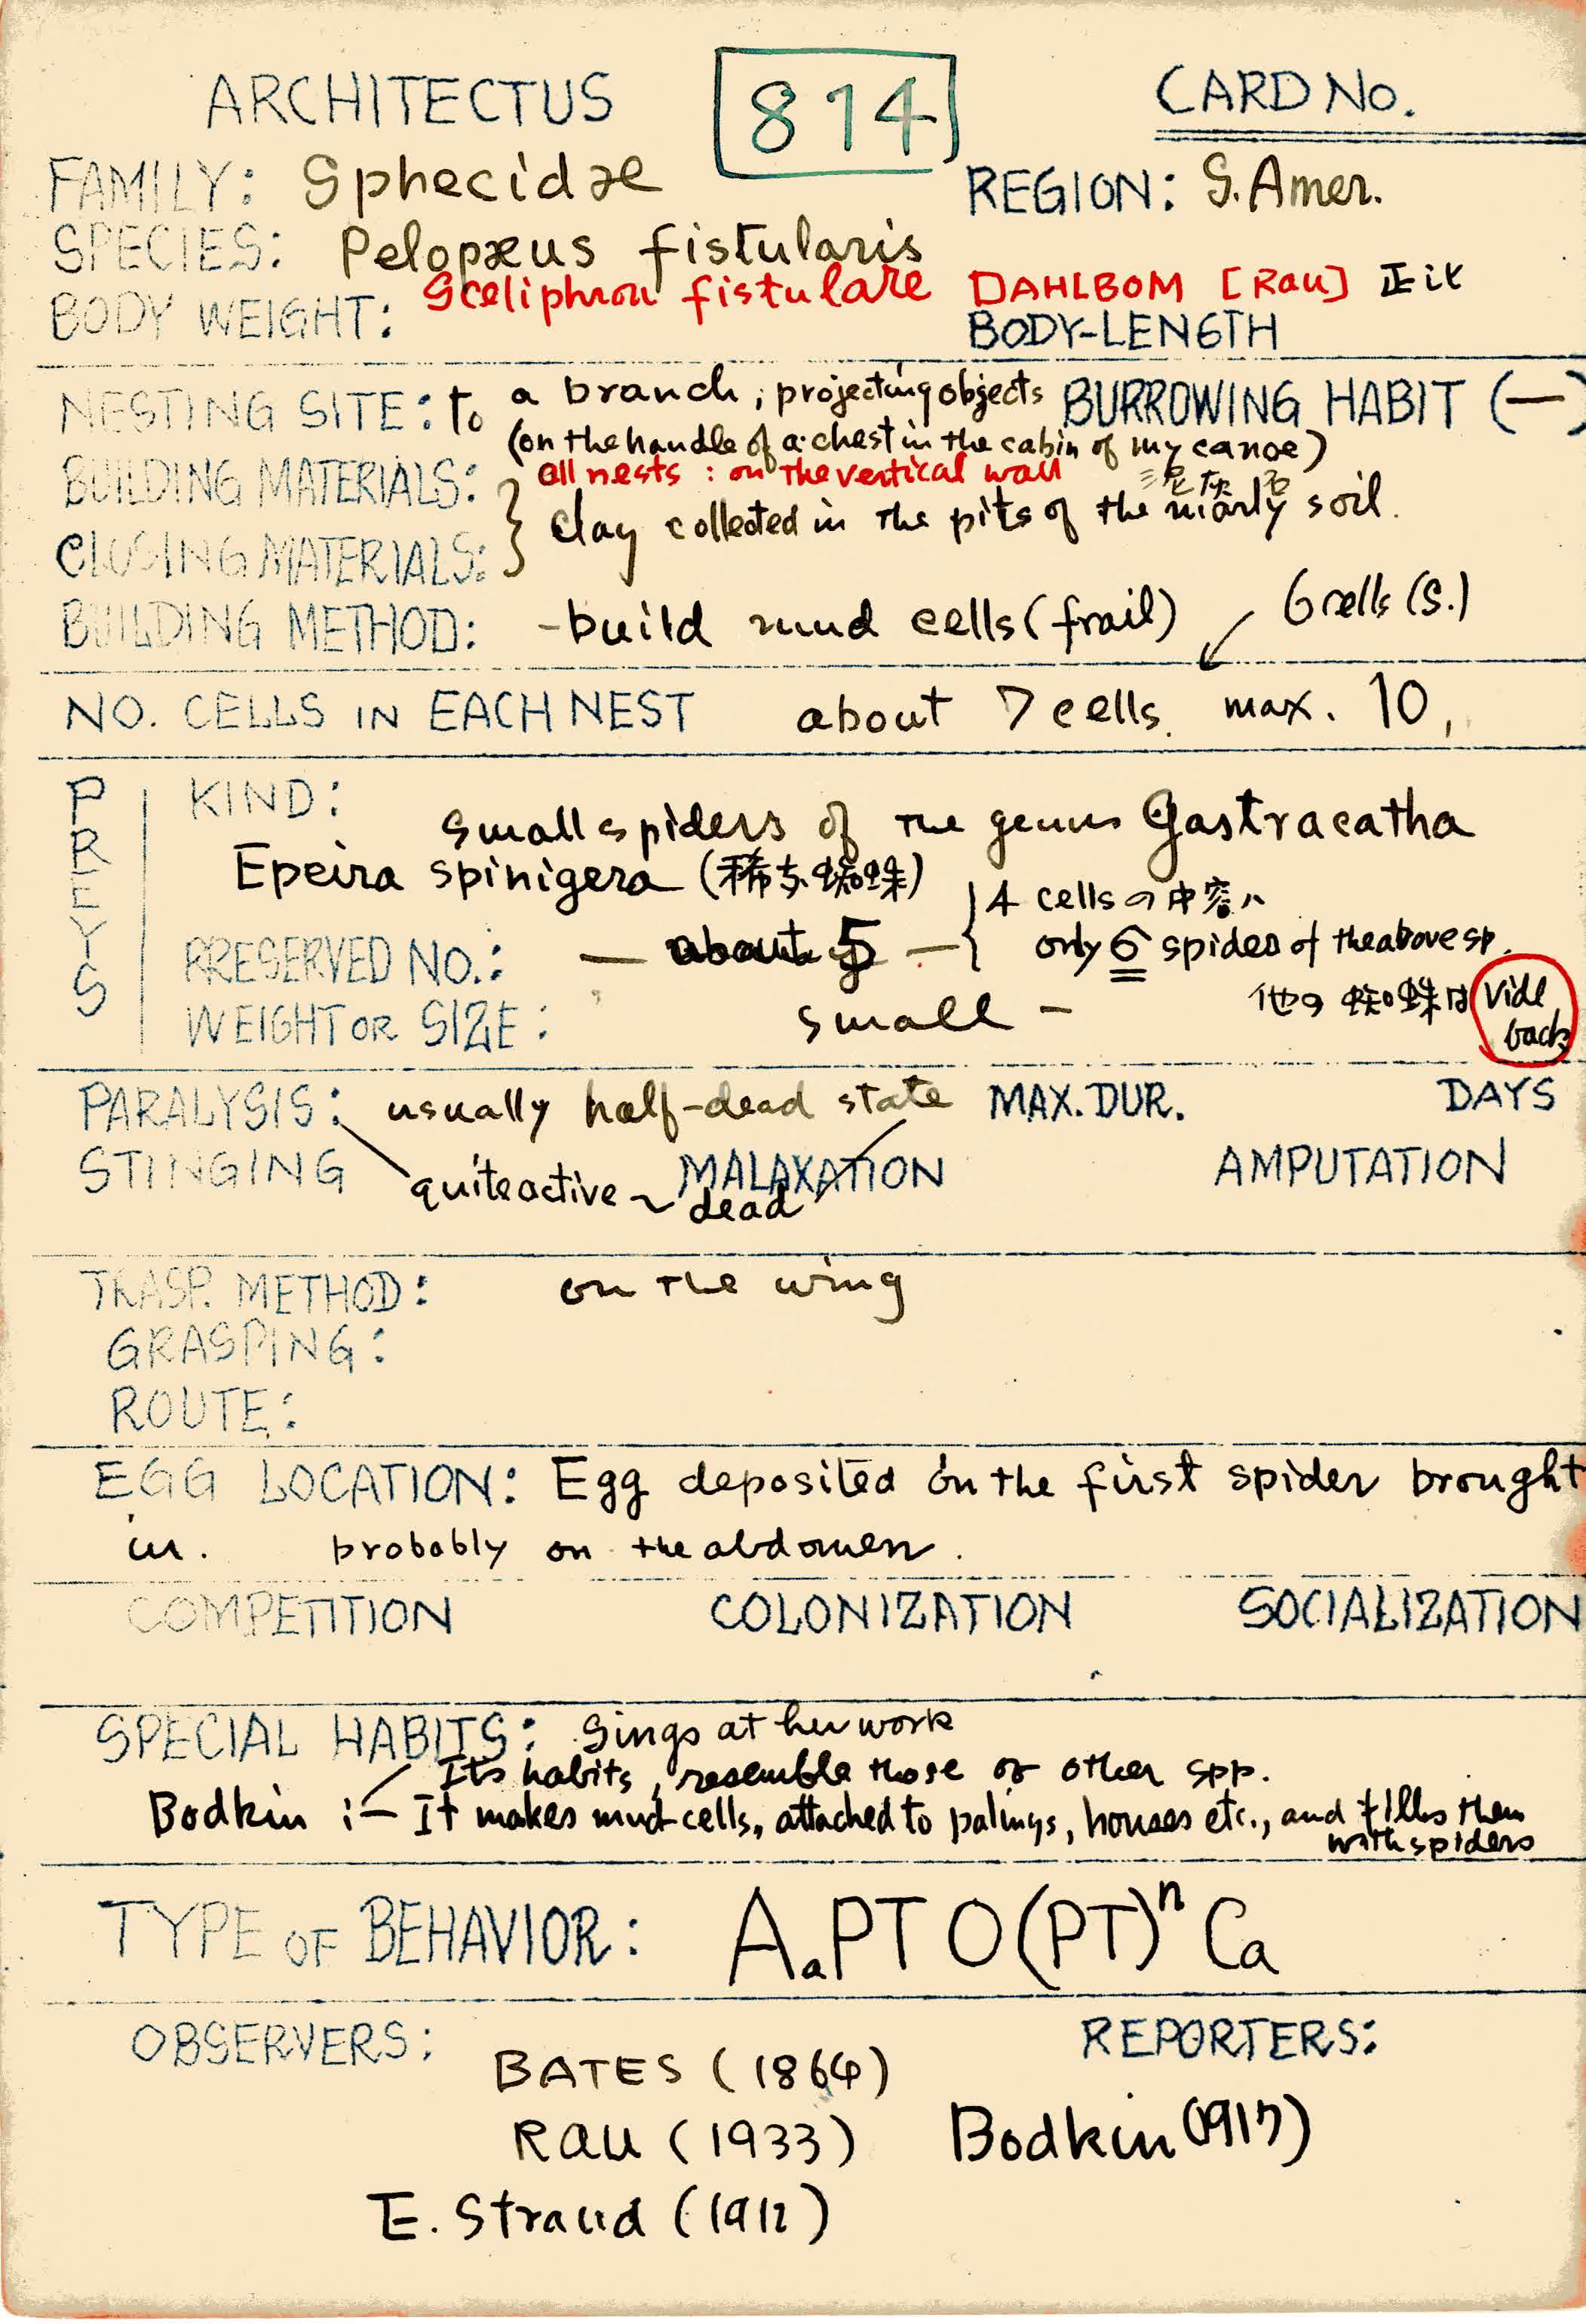 ARCHITECTUS 814 CARD No.
FAMILY: Sphecidæ REGION: S. Amer.
SPECIES: Pelopæus fistularis
Sceliphron fistulare DAHLBOM [Rau]
BODY WEIGHT: BODY-LENGTH
NESTING SITE: to a branch, projecting objects BURROWING HABIT (—)
(on the handle of a chest in the cabin of my canoe)
all nests : on the vertical wall
BUILDING MATERIALS:
clay collected in the pits of the marly soil.
CLOSING MATERIALS:
BUILDING METHOD: -build mud cells (frail) 6 cells (S.)
NO. CELLS IN EACH NEST about 7 cells. max. 10,
PREYS
KIND:
small spiders of the genus Gastracatha
Epeira spinigera (稀な蜘蛛)
4 cells の中
PRESERVED NO.: — about 5 — only 6 spides of the above sp.
WEIGHT OR SIZE: small - 他の蜘蛛は vide back
PARALYSIS: usually half-dead state MAX. DUR. DAYS
STINGING MALAXATION AMPUTATION
quite active ~ dead
TRASP. METHOD: on the wing
GRASPING:
ROUTE:
EGG LOCATION: Egg deposited on the first spider brought
in. probably on the abdomen.
COMPETITION COLONIZATION SOCIALIZATION
SPECIAL HABITS: Sings at her work
Its habits, resemble those of other spp.
Bodkin :— It makes mud-cells, attached to palings, houses etc., and fills them
with spiders
TYPE OF BEHAVIOR: AaPTO(PT)ⁿCa
OBSERVERS: REPORTERS:
BATES (1864)
RAU (1933) Bodkin (1917)
E. Strand (1912)